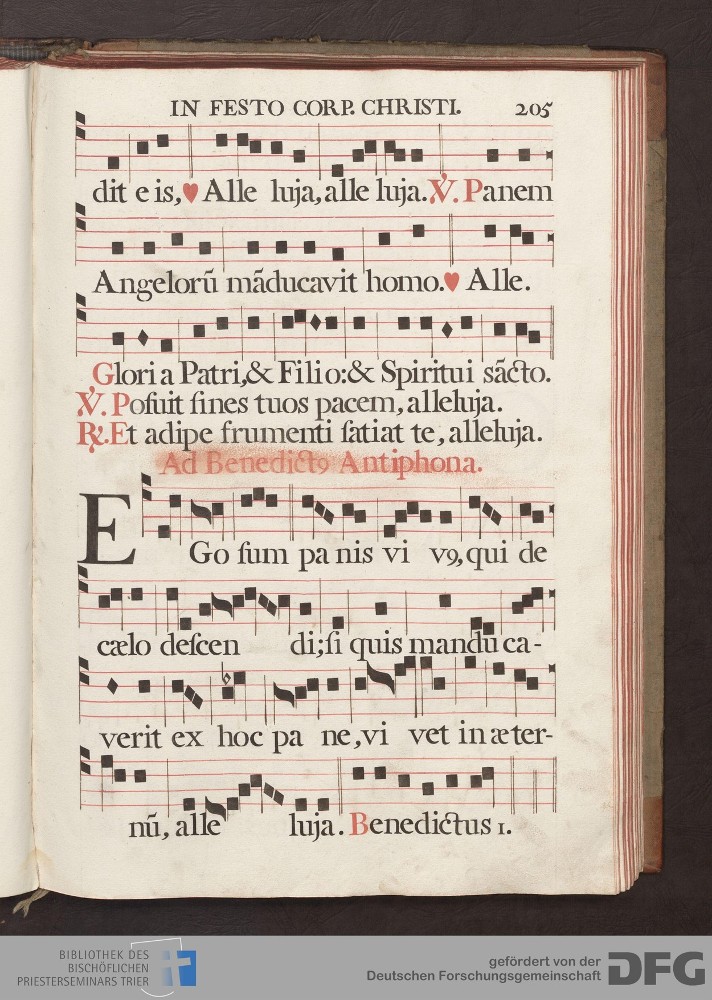 IN FESTO CORP. CHRISTI. 205
dit e is, Alle luja, alle luja. ℣. Panem
Angelorū māducavit homo. Alle.
Glori a Patri, & Fili o: & Spiritu i sācto.
℣. Poſuit fines tuos pacem, alleluja.
℟. Et adipe frumenti ſatiat te, alleluja.
Ad Benedictꝰ Antiphona.
EGo ſum pa nis vi vꝰ, qui de
cælo deſcen di; ſi quis mandu ca-
verit ex hoc pa ne, vi vet in æter-
nū, alle luja. Benedictus 1.
BIBLIOTHEK DES
BISCHÖFLICHEN
PRIESTERSEMINARS TRIER
gefördert von der
Deutschen Forschungsgemeinschaft
DFG